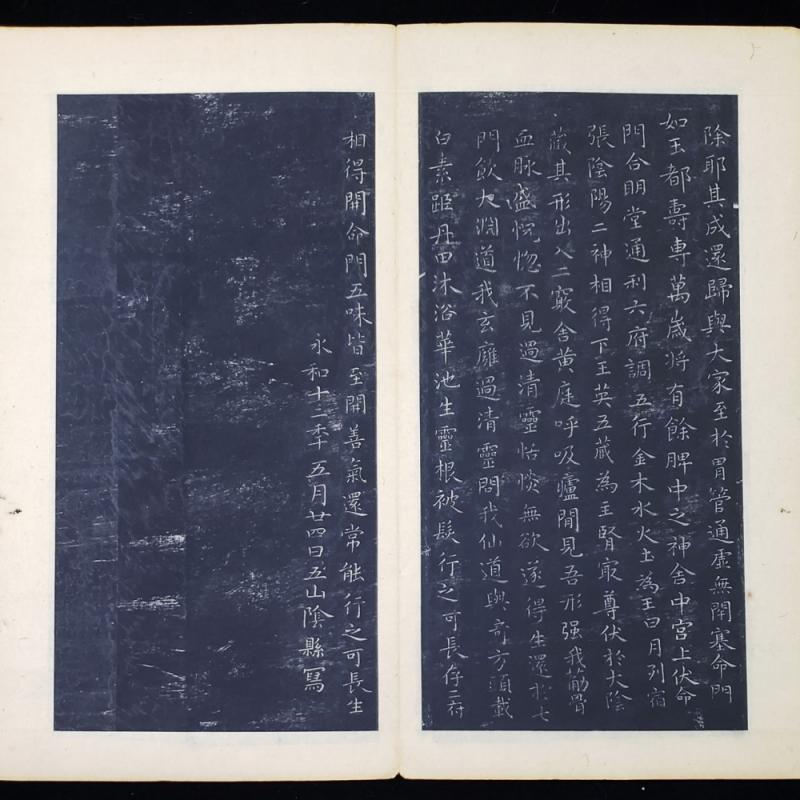 除耶其成還歸與大家至於胃管通虛無閉塞命門
如玉都壽専萬歲將有餘脾中之神舍中宮上伏命
門合明堂通利六府調五行金木水火土為王日月列宿
張陰陽二神相得下玉英五藏為主腎冣尊伏於大陰
藏其形出入二竅舍黄庭呼吸廬間見吾形强我筋骨
血脉盛怳惚不見過清靈恬惔無欲遂得生還於七
門飲大淵道我玄廱過清靈問我仙道與奇方頭載
白素距丹田沐浴華池生靈根被髮行之可長存二府
相得開命門五味皆至開善氣還常能行之可長生
永和十二秊五月廿四日五山陰縣寫